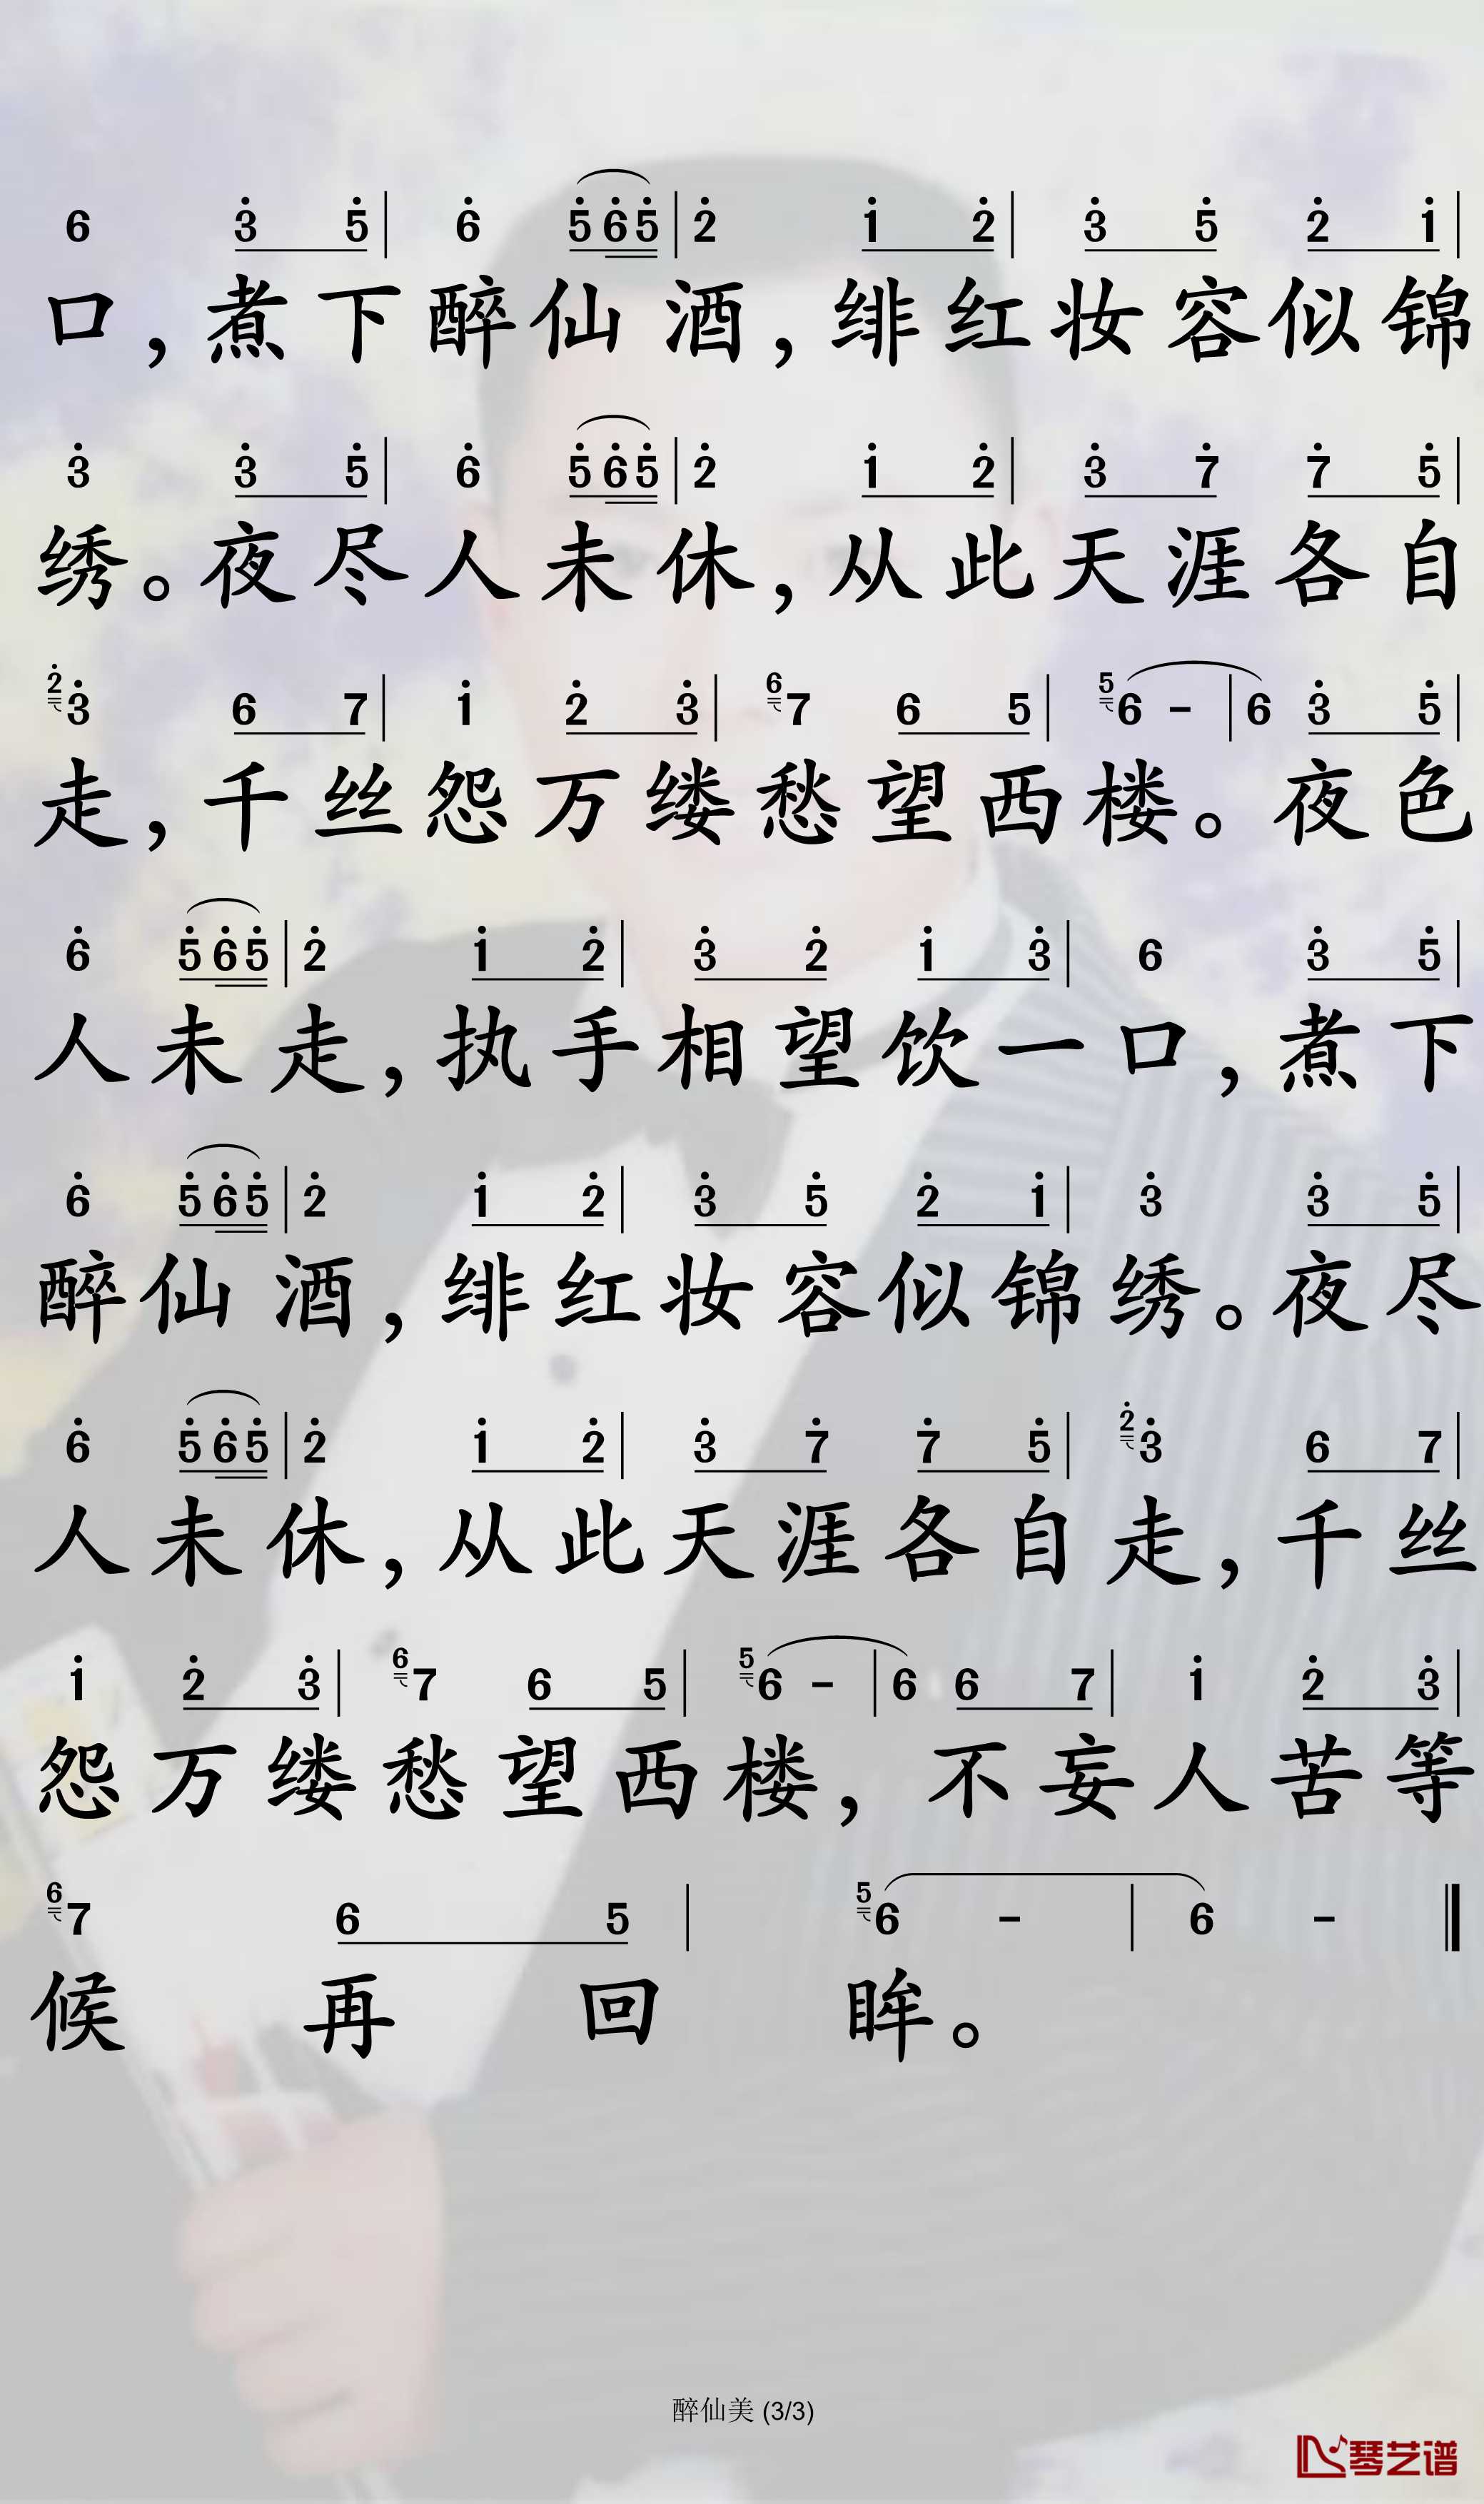 6 3 5 | 6 5 6 5 | 2 1 2 | 3 5 2 1 |
口，煮下醉仙酒，绯红妆容似锦
3 3 5 | 6 5 6 5 | 2 1 2 | 3 7 7 5 |
绣。夜尽人未休，从此天涯各自
2 3 6 7 | 1 2 3 | 6 7 6 5 | 5 6 - | 6 3 5 |
走，千丝怨万缕愁望西楼。夜色
6 5 6 5 | 2 1 2 | 3 2 1 3 | 6 3 5 |
人未走，执手相望饮一口，煮下
6 5 6 5 | 2 1 2 | 3 5 2 1 | 3 3 5 |
醉仙酒，绯红妆容似锦绣。夜尽
6 5 6 5 | 2 1 2 | 3 7 7 5 | 2 3 6 7 |
人未休，从此天涯各自走，千丝
1 2 3 | 6 7 6 5 | 5 6 - | 6 6 7 | 1 2 3 |
怨万缕愁望西楼，不妄人苦等
6 7 6 5 | 5 6 - | 6 - ‖
候再回眸。
醉仙美 (3/3)
琴艺谱